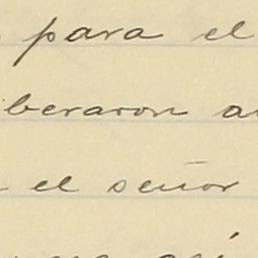 para el
beraron a
el señor
así